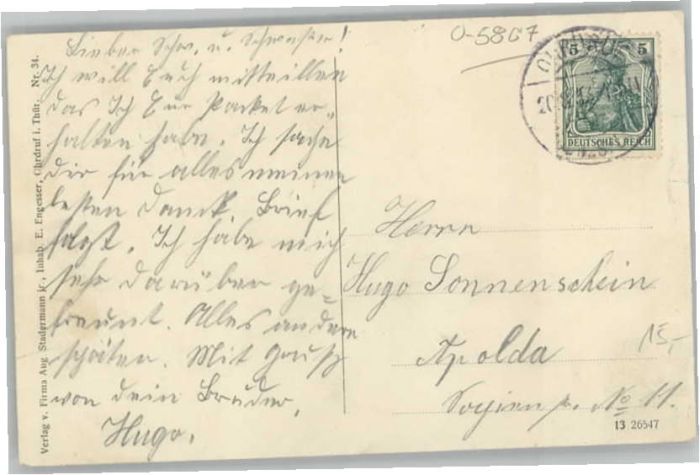 O-5867
Lieber Schw. u. Schwester!
Ich will Euch mitteillen
das Ich Eur Packet er-
halten habe. Ich sache
dir für alles meinen
besten Danck. Brief
folgt. Ich habe mich
sehr darüber ge-
freunt. Alles andere
späten. Mit Gruß
von dein Bruder,
Hugo.
5 5
DEUTSCHES REICH
Herrn
Hugo Sonnenschein
Apolda
No 11.
15,-
13 26547
Verlag v. Firma Aug. Stadermann jr., Inhab. E. Engesser, Ohrdruf i. Thür. Nr. 34.